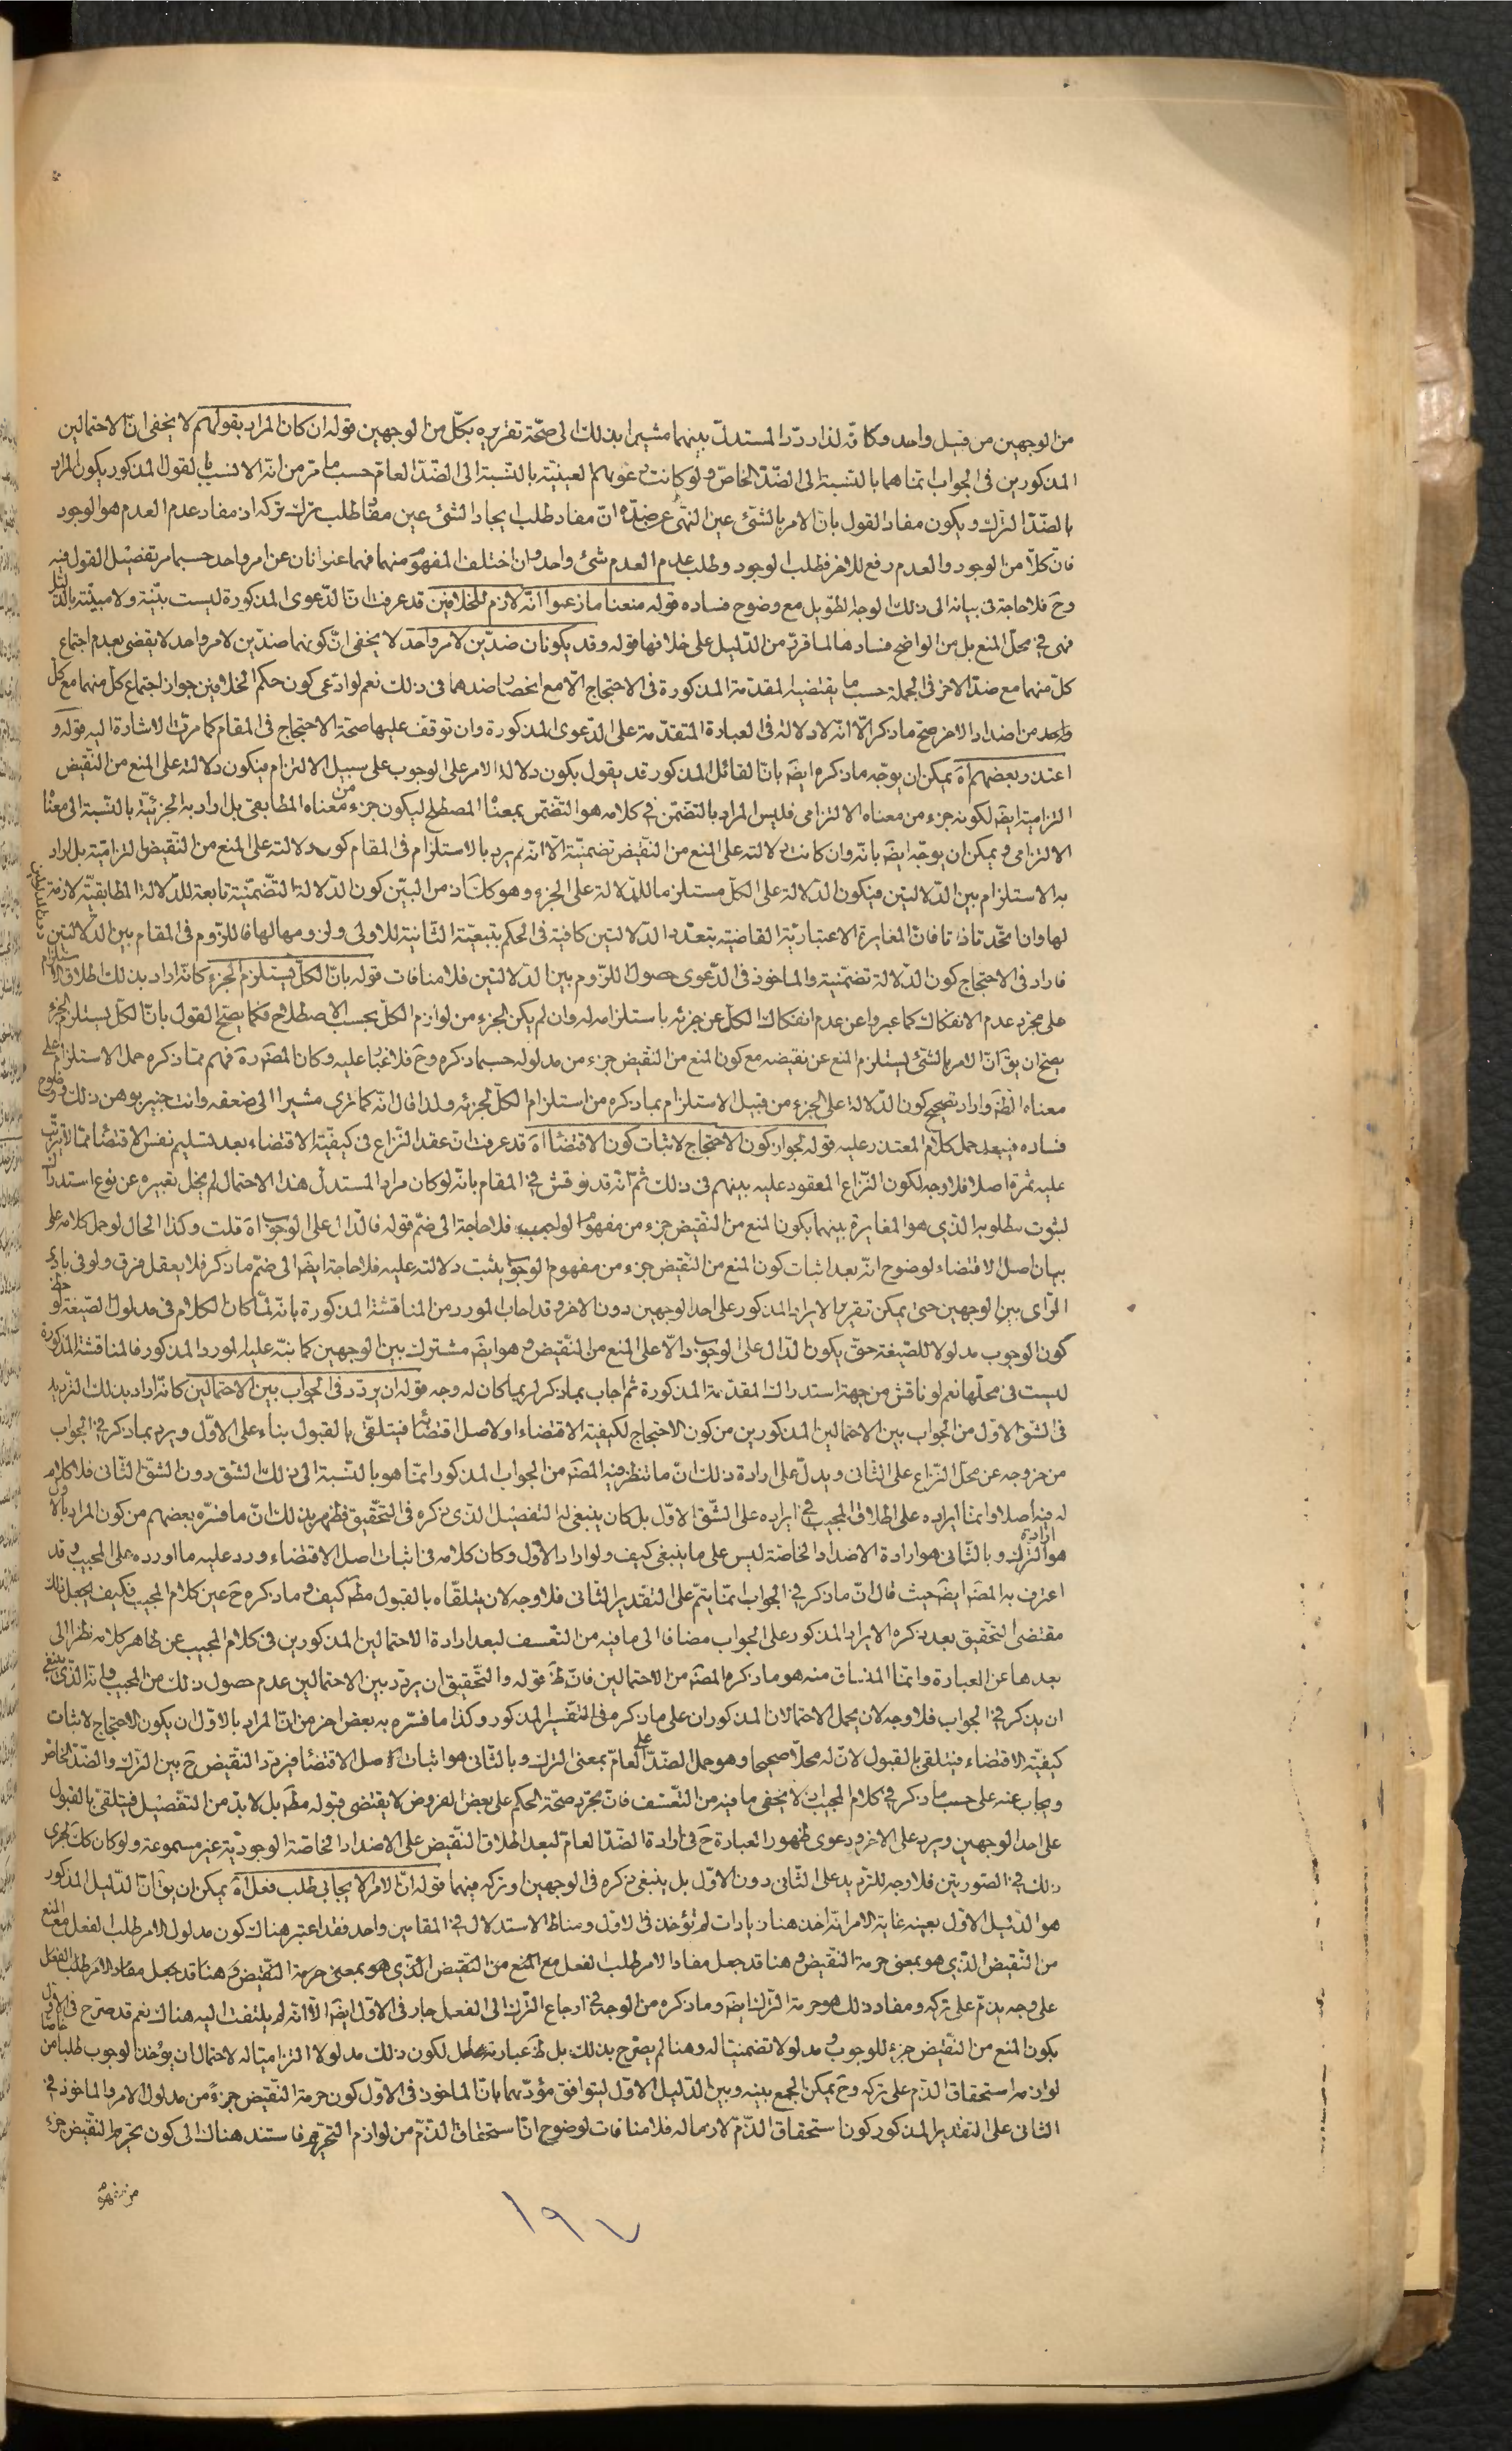 من الوجهين من قبيل واحد وكانّه لذا ردّد المستدلّ بينهما مشيرا بذلك الى صحّة تقريره بكلّ من الوجهين قوله ان كان المراد بقولهم لا يخفى انّ الاحتمالين
المذكورين فى الجواب انّما هما بالنّسبة الى الضّدّ الخاصّ ولو كانت دعويهم العينيّة بالنّسبة الى الضّدّ العامّ حسب ما مرّ من انّه الانسب بالقول المذكور يكون المراد
بالضّدّ الترك ويكون مفاد القول بانّ الامر بالشّئ عين النّهى عن ضدّه انّ مفاد طلب ايجاد الشّئ عين مفاد طلب ترك تركه اذ مفاد عدم العدم هو الوجود
فانّ كلّا من الوجود والعدم رفع للاخر فطلب الوجود وطلب عدم العدم شئ واحد وان اختلف المفهوم منهما فهما عنوانان عن امر واحد حسبما مر تفصيل القول فيه
وح فلا حاجة فى بيانه الى ذلك الوجه الطّويل مع وضوح فساده قوله منعنا ما زعموا انّه لازم للخلافين قد عرفت انّ الدّعوى المذكورة ليست بيّنة ولا مبيّنة بالدّليل
فهى فى محلّ المنع بل من الواضح فسادها لما قرّر من الدّليل على خلافها قوله وقد يكونان ضدّين لامر واحد لا يخفى انّ كونهما ضدّين لامر واحد لا يقضى بعدم اجتماع
كلّ منهما مع ضدّ الاخر فى الجملة حسب ما يقتضيه المقدّمة المذكورة فى الاحتجاج الّا مع انحصار ضدهما فى ذلك نعم لو ادّعى كون حكم الخلافين جواز اجتماع كل منهما مع كل
واحد من اضداد الاخر صحّ ما ذكر الّا انّه لا دلالة فى العبارة المتقدّمة على الدّعوى المذكورة وان توقف عليها صحّة الاحتجاج فى المقام كما مرّت الاشارة اليه قوله و
اعتذر بعضهم اه يمكن ان يوجّه ما ذكره ايضَ بانّ القائل المذكور قد يقول بكون دلالة الامر على الوجوب على سبيل الالتزام فيكون دلالته على المنع من النّقيض
التزاميّة ايضَ لكونه جزء من معناه الالتزامى فليس المراد بالتضمّن فى كلامه هو التضمّن بمعناه المصطلح ليكون جزء من معناه المطابقىّ بل اراد به الجزئيّة بالنّسبة الى معناه
الالتزامى ويمكن ان يوجّه ايضَ بانّه وان كانت دلالته على المنع من النّقيض تضمنيّة الّا انّه لم يرد بالاستلزام فى المقام كون دلالته على المنع من النّقيض التزاميّة بل اراد
به الاستلزام بين الدّلالتين فيكون الدّلالة على الكلّ مستلزما للدّلالة على الجزء وهو كك اذ من البيّن كون الدّلالة التّضمّنيّة تابعة للدّلالة المطابقيّة لازمة
لها وان اتّحدتا ذاتا فانّ المغايرة الاعتباريّة القاضية بتعدّد الدّلالتين كافية فى الحكم بتبعيّة الثّانية للاولى ولزومها لها فاللزّوم فى المقام بين الدّلالتين
فاراد فى الاحتجاج كون الدّلالة تضمّنية والماخوذ فى الدّعوى حصول اللّزوم بين الدّلالتين فلا منافات قوله بانّ الكلّ يستلزم الجزء كانّه اراد بذلك اطلاق الاستلزام
على مجرّد عدم الانفكاك كما عبروا عن عدم انفكاك الكلّ عن جزئه باستلزامه له وان لم يكن الجزء من لوازم الكلّ بحسب الاصطلاح فكما يصحّ القول بانّ الكلّ يستلزم الجزء
يصحّ ان يقَ انّ الامر بالشّئ يستلزم المنع عن نقيضه مع كون المنع من النّقيض جزء من مدلوله حسبما ذكره وح فلا غبار عليه وكان المصَ ره فهم ممّا ذكره حمل الاستلزام على
معناه الظَ واراد تصحيح كون الدّلالة على الجزء من قبيل الاستلزام بما ذكره من استلزام الكلّ لجزئه ولذا قال انّه كما ترى مشيرا الى ضعفه وانت خبير بوهن ذلك ووضوح
فساده فيبعد حمل كلام المعتذر عليه قوله لجواز كون الاحتجاج لاثبات كون الاقتضاء اه قد عرفت انّ عقد النّزاع فى كيفيّة الاقتضاء بعد تسليم نفس الاقتضاء ممّا لا يترتّب
عليه ثمرة اصلا فلا وجه لكون النّزاع المعقود عليه بينهم فى ذلك ثمّ انّه قد نوقش فى المقام بانّه لو كان مراد المستدلّ هذا الاحتمال لم يخل تعبيره عن نوع استدراك
لثبوت مطلوبه الّذى هو المغايرة بينهما بكون المنع من النّقيض جزء من مفهوم الوجوب فلا حاجة الى ضمّ قوله فالدّال على الوجوب اه قلت وكذا الحال لو حمل كلامه على
بيان اصل الاقتضاء لوضوح انّه بعد اثبات كون المنع من النّقيض جزء من مفهوم الوجوب يثبت دلالته عليه فلا حاجة ايضَ الى ضمّ ما ذكر فلا يعقل فرق ولو فى بادى
الرّاى بين الوجهين حتّى يمكن تقرير الايراد المذكور على احد الوجهين دون الاخر وقد اجاب المورد من المناقشة المذكورة بانّه لمّا كان الكلام فى مدلول الصّيغة
كون الوجوب مدلولا للصّيغة حتّى يكون الدّال على الوجوب دالّا على المنع من النّقيض وهو ايضَ مشترك بين الوجهين كما نبّه عليه المورد المذكور فالمناقشة المذكورة
ليست فى محلّها نعم لو ناقش من جهة استدراك المقدّمة المذكورة ثم اجاب بما ذكر لربما كان له وجه قوله ان يردّد فى الجواب بين الاحتمالين كانّه اراد بذلك الترديد
فى الشّق الاوّل من الجواب بين الاحتمالين المذكورين من كون الاحتجاج لكيفيّة الاقتضاء او لاصل اقتضائه فيتلقّى بالقبول بناء على الاوّل ويرد بما ذكر فى الجواب
من خروجه عن محلّ النّزاع على الثّانى ويدلّ على ارادة ذلك انّ ما تنظّر فيه المصَ من الجواب المذكور انّما هو بالنّسبة الى ذلك الشّق دون الشّق الثّانى فلا كلام
له فيه اصلا وانّما ايراده على اطلاق المجيب فى ايراده على الشّق الاوّل بل كان ينبغى له التفصيل الّذى ذكره فى التّحقيق فظهر بذلك انّ ما فسّره بعضهم من كون المراد بالاول
هو ارادة الترك وبالثّانى هو ارادة الاضداد الخاصّة ليس على ما ينبغى كيف ولو اراد الاوّل وكان كلامه فى اثبات اصل الاقتضاء ورد عليه ما اورده على المجيب وقد
اعترف به المصَ ايضَ حيث قال انّ ما ذكر فى الجواب انّما يتمّ على التقدير الثّانى فلا وجه لان يتلقّاه بالقبول مطَ كيف وما ذكره ح عين كلام المجيب فكيف يجعل ذلك
مقتضى التّحقيق بعد ذكره الايراد المذكور على الجواب مضافا الى ما فيه من التعّسف لبعد ارادة الاحتمالين المذكورين فى كلام المجيب عن ظاهر كلامه نظرا الى
بعدها عن العبارة وانّما المنساق منه هو ما ذكره المصَ من الاحتمالين فانّ ظَ قوله والتّحقيق ان يردّد بين الاحتمالين عدم حصول ذلك من المجيب وانّه الّذى ينبغى
ان يذكر فى الجواب فلا وجه لان يحمل الاحتمالان المذكوران على ما ذكره فى التّفسير المذكور وكذا ما فسّره به بعض اخر من انّ المراد بالاوّل ان يكون الاحتجاج لاثبات
كيفيّة الاقتضاء فيتلقى بالقبول لانّ له محلّا صحيحا وهو حمل الضّدّ على العامّ بمعنى الترك وبالثّانى هو اثبات اصل الاقتضاء فيردّد النّقيض ح بين الترك والضّدّ الخاصّ
ويجاب عنه على حسب ما ذكر فى كلام المجيب اذ لا يخفى ما فيه من التعّسف فانّ مجرّد صحّة الحكم على بعض الفروض لا يقتضى قبوله مطَ بل لا بدّ من التفصيل فيتلقى بالقبول
على احد الوجهين ويرد على الاخر ودعوى ظهور العبارة ح فى ارادة الضّدّ العامّ لبعد اطلاق النّقيض على الاضداد الخاصّة الوجوديّة غير مسموعة ولو كان كك لجرى
ذلك فى الصّورتين فلا وجه للترديد على الثّانى دون الاوّل بل ينبغى ذكره فى الوجهين او تركه فيهما قوله انّ الامر الايجابى طلب فعل اه يمكن ان يقَ انّ الدّليل المذكور
هو الدّليل الاوّل بعينه غاية الامر انّه اخذ هنا زيادات لم تؤخذ فى الاوّل ومناط الاستدلال فى المقامين واحد فقد اعتبر هناك كون مدلول الامر طلب الفعل مع المنع
من النّقيض الّذى هو بمعنى حرمة النّقيض وهنا قد جعل مفاد الامر طلب الفعل مع المنع من النّقيض الّذى هو بمعنى حرمة النّقيض وهنا قد جعل مفاد الامر طلب الفعل
على وجه يذمّ على تركه ومفاد ذلك هو حرمة الترك ايضَ وما ذكره من الوجه فى ارجاع الترك الى الفعل جار فى الاوّل ايضَ الّا انّه لم يلتفت اليه هناك نعم قد صرّح فى الاوّل
بكون المنع من النّقيض جزء للوجوب ومدلولا تضمنيّا له وهنا لم يصرّح بذلك بل ظَ عبارته لكون ذلك مدلولا التزاميّا له لاحتمال ان يؤخذ الوجوب طلبا خاصّا من
لوازمه استحقاق الذّم على تركه وح يمكن الجمع بينه وبين الدّليل الاوّل ليتوافق مؤدّيهما بانّ الماخوذ فى الاوّل كون حرمة النّقيض جزءً من مدلول الامر والماخوذ فى
الثانى على التقدير المذكور كون استحقاق الذّمّ لازما له فلا منافات لوضوح انّ استحقاق الذّمّ من لوازم التّحريم فاستند هناك الى كون تحريم النّقيض جزء
من مفهوم
١٩٧